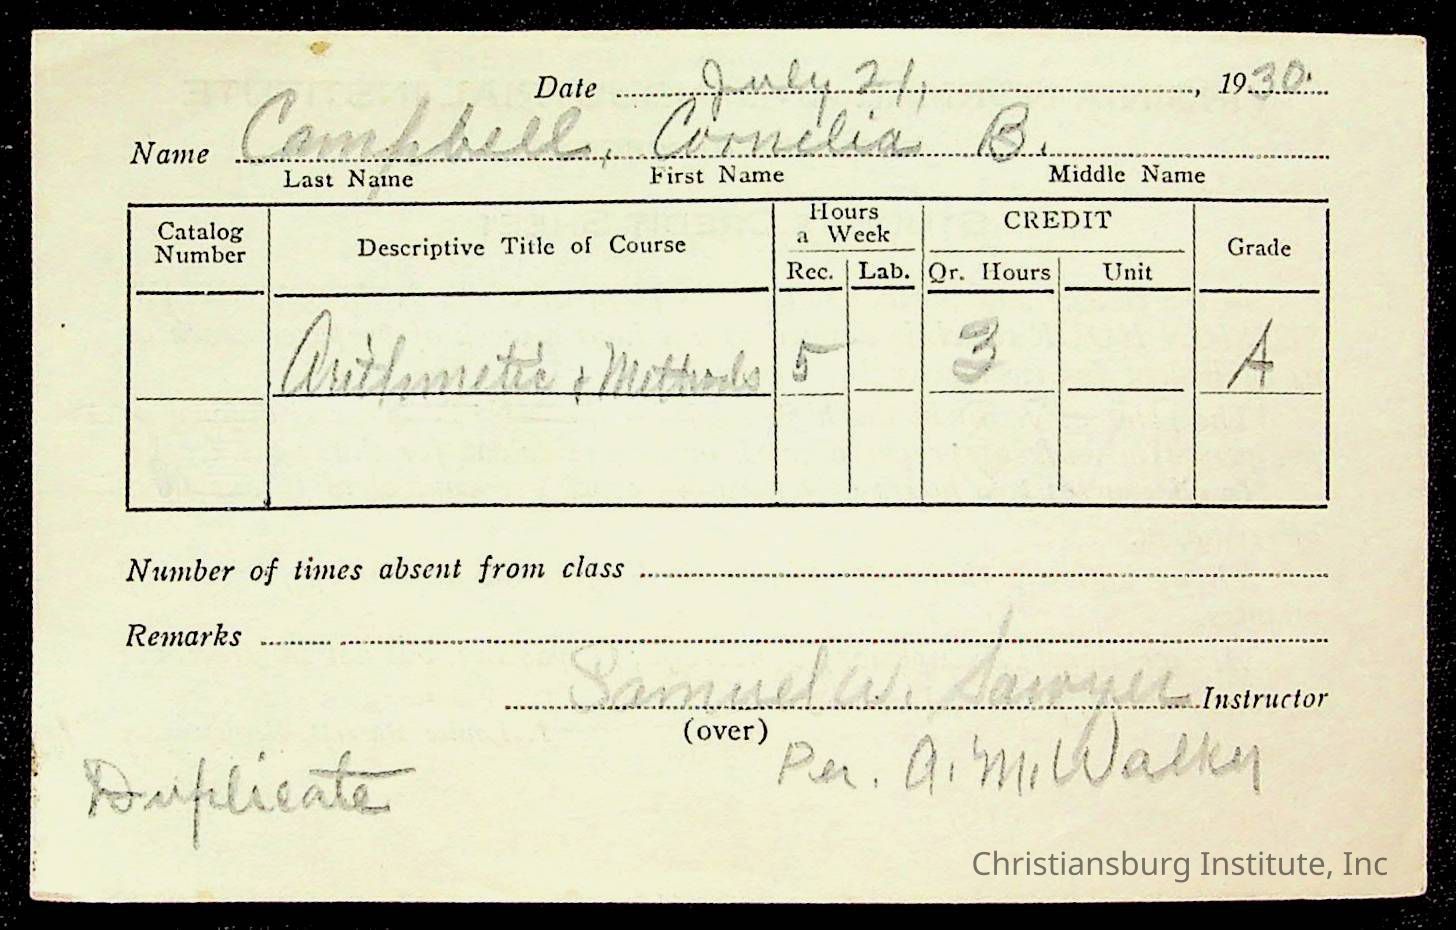 Date July 21, 1930.
Name Campbell, Cornelia B.
Last Name First Name Middle Name
Catalog Number Descriptive Title of Course Hours a Week CREDIT Grade
Rec. Lab. Qr. Hours Unit
Arithmetic & Methods 5 3 A
Number of times absent from class
Remarks
Samuel W. Sawyer Instructor
(over)
Per. A. M. Walker
Duplicate
Christiansburg Institute, Inc